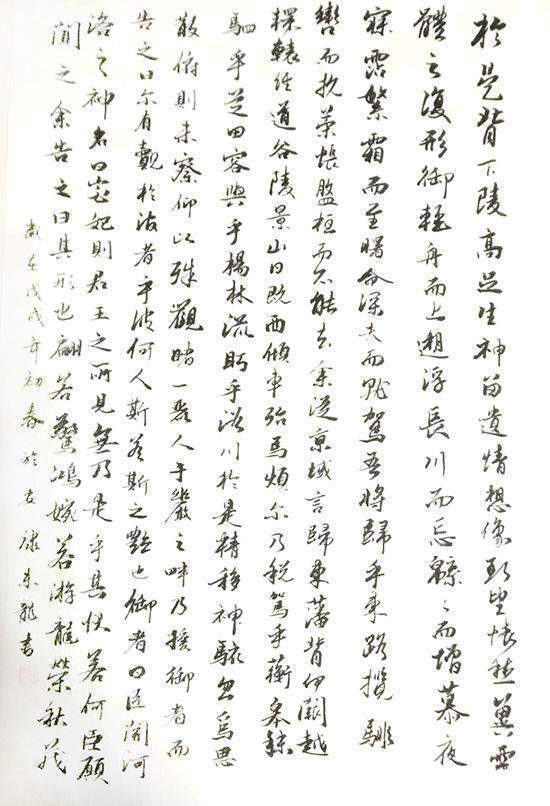 於是背下陵高足往神留遺情想像顧望懷愁冀靈
體之復形御輕舟而上遡浮長川而忘緜〻而增慕夜
寐霑繁霜而至曙命僕夫而就駕吾將歸乎東路攬騑
轡而抗策悵盤桓而不能去余從京域言歸東藩背伊闕越
轘轅經道谷陵景山日既西傾車殆馬煩尔乃稅駕乎蘅皋秣
駟乎芝田容與乎楊林流眄乎洛川於是精移神駭忽焉思
散俯則未察仰以殊觀睹一麗人于巖之畔乃援御者而
告之曰尔有覿於彼者乎彼何人斯若斯之艷也御者曰臣聞河
洛之神名曰宓妃則君王之所見無乃是乎其狀若何臣願
聞之余告之曰其形也翩若驚鴻婉若游龍榮秋茂
歲在戊戌年初春於書